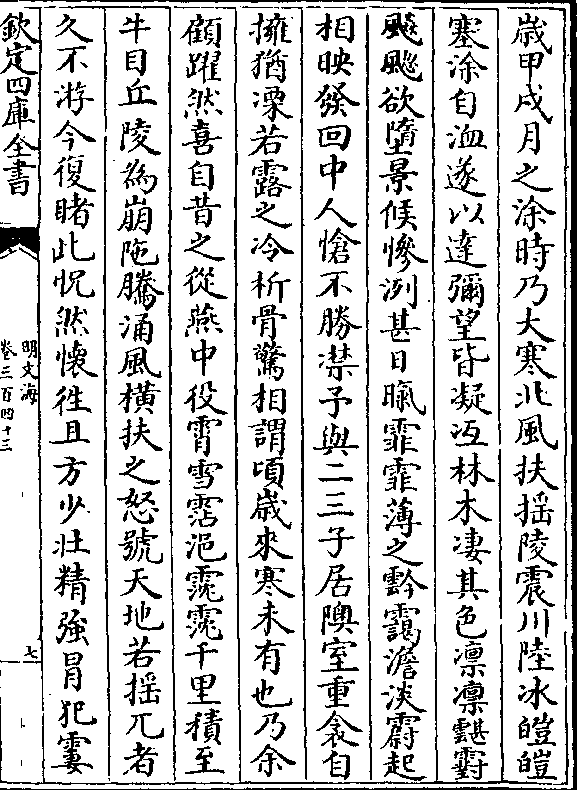 歳甲戌月之涂時乃大寒北風扶揺陵震川陸冰皚皚
塞涂自洫遂以達彌望皆凝冱林木凄其色凛凛䨴霨
飈飈欲墮景候慘冽甚日暾霏霏薄之黔靄澹淡霨起
相映發回中人愴不勝凚予與二三子居隩室重衾自
擁猶凓若露之冷析骨驚相謂頃歳來寒未有也乃余
顧躍然喜自昔之從燕中役霄雪霑浥霓霓千里積至
牛目丘陵為崩陁騰涌風横扶之怒號天地若揺兀者
久不游今復睹此怳然懷徃且方少壮精強冐犯霎
欽定四庫全書
明文海
卷三百四十三
七